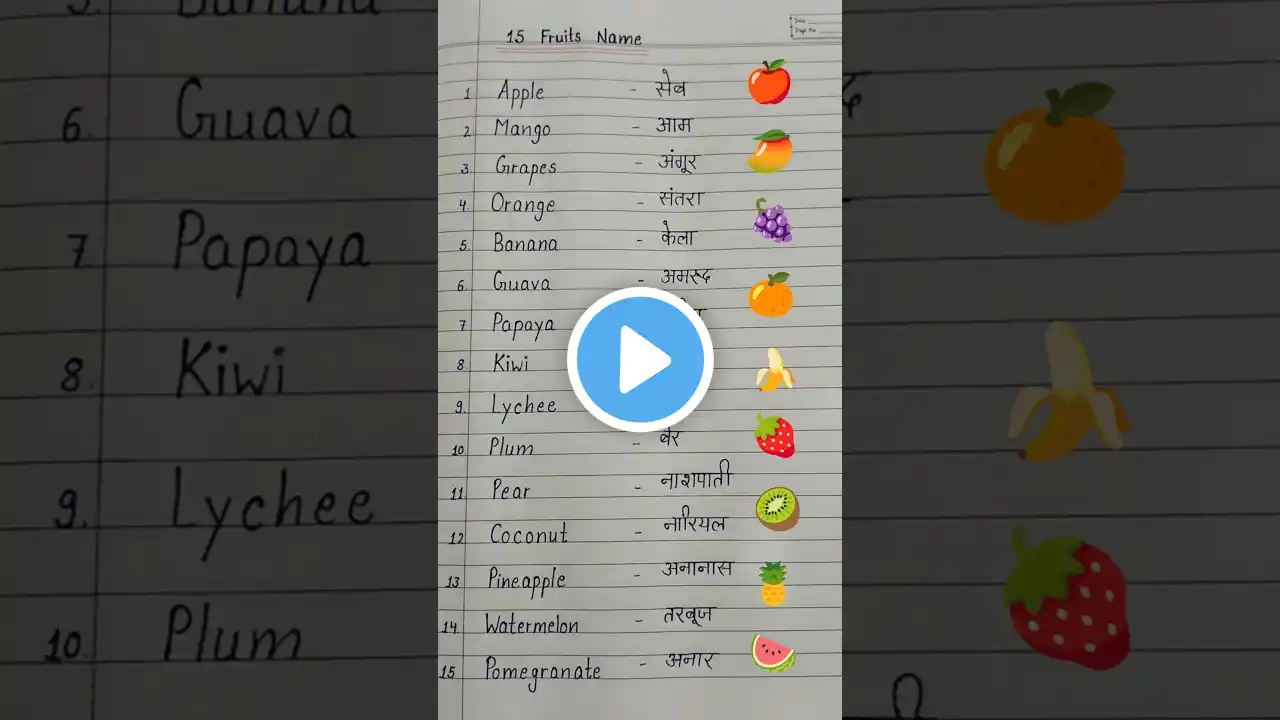 15 Fruits Name
1 Apple - सेब
2 Mango - आम
3. Grapes - अंगूर
4. Orange - संतरा
5. Banana - केला
6. Guava - अमरूद
7 Papaya
8. Kiwi
9. Lychee
10. Plum - बेर
11. Pear - नाशपाती
12. Coconut - नारियल
13 Pineapple - अनानास
14. Watermelon - तरबूज
15 Pomegranate - अनार
Banana
6. Guava
7 Papaya
8. Kiwi
9. Lychee
10. Plum